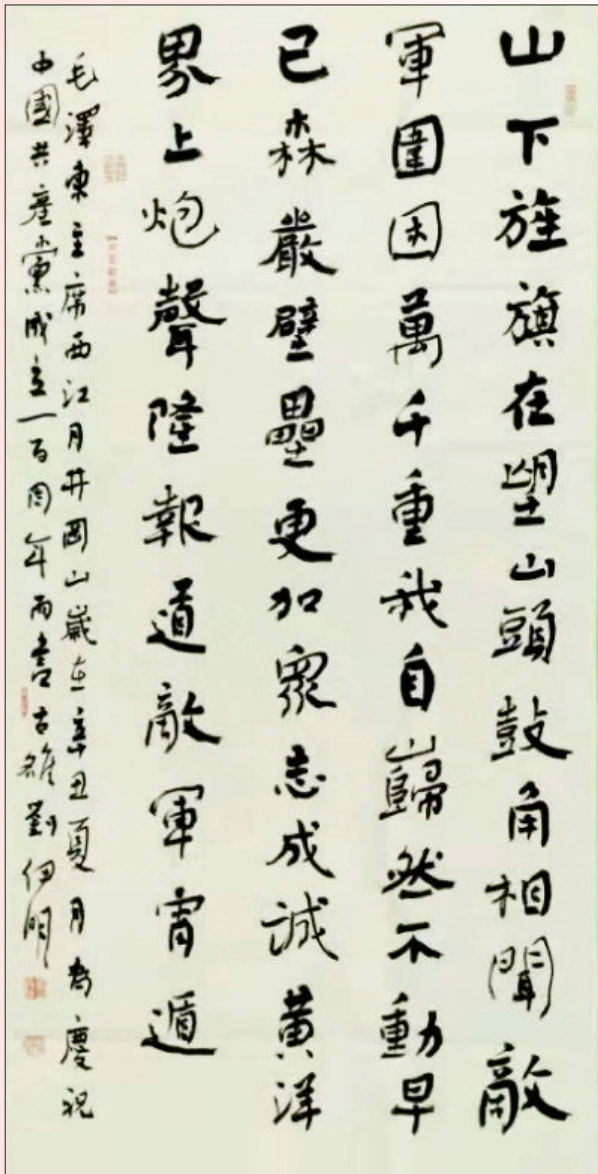 山下旌旗在望山頭鼓角相聞敵
軍圍困萬千重我自巋然不動早
已森嚴壁壘更加眾志成誠黃洋
界上炮聲隆報道敵軍宵遁
毛澤東主席西江月井岡山歲在辛丑夏月為慶祝
中國共產黨成立一百周年而書古雒劉明